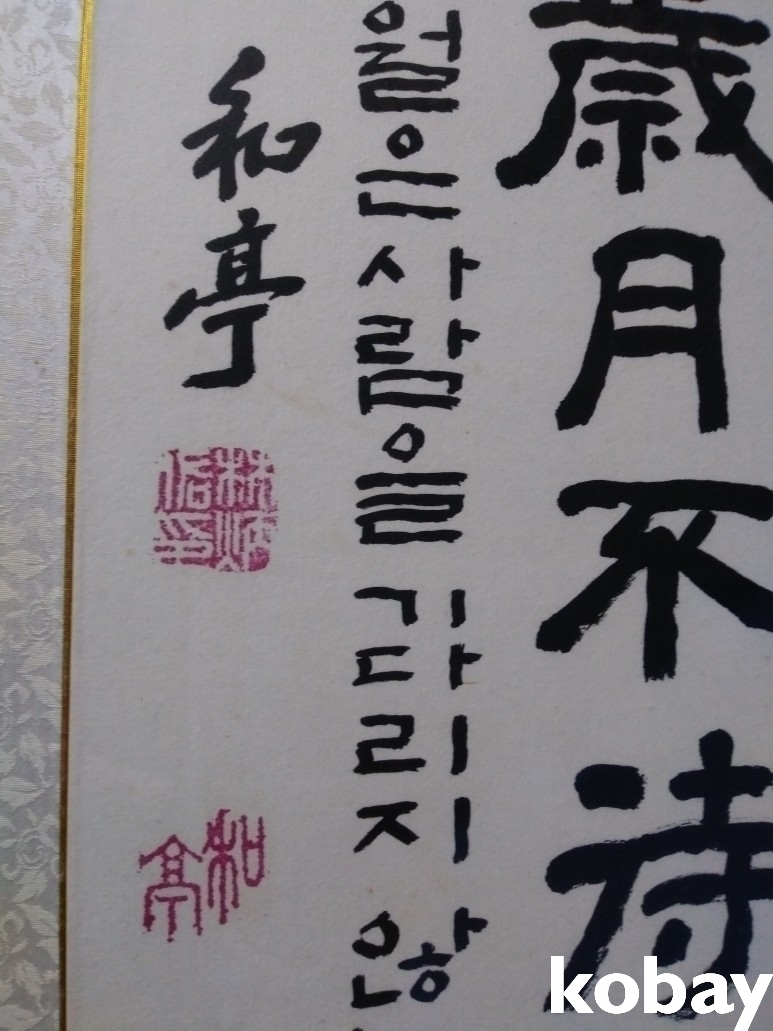 歲月不待
월은사람을 기다리지 않
和亭
林炳
信印
和亭
kobay